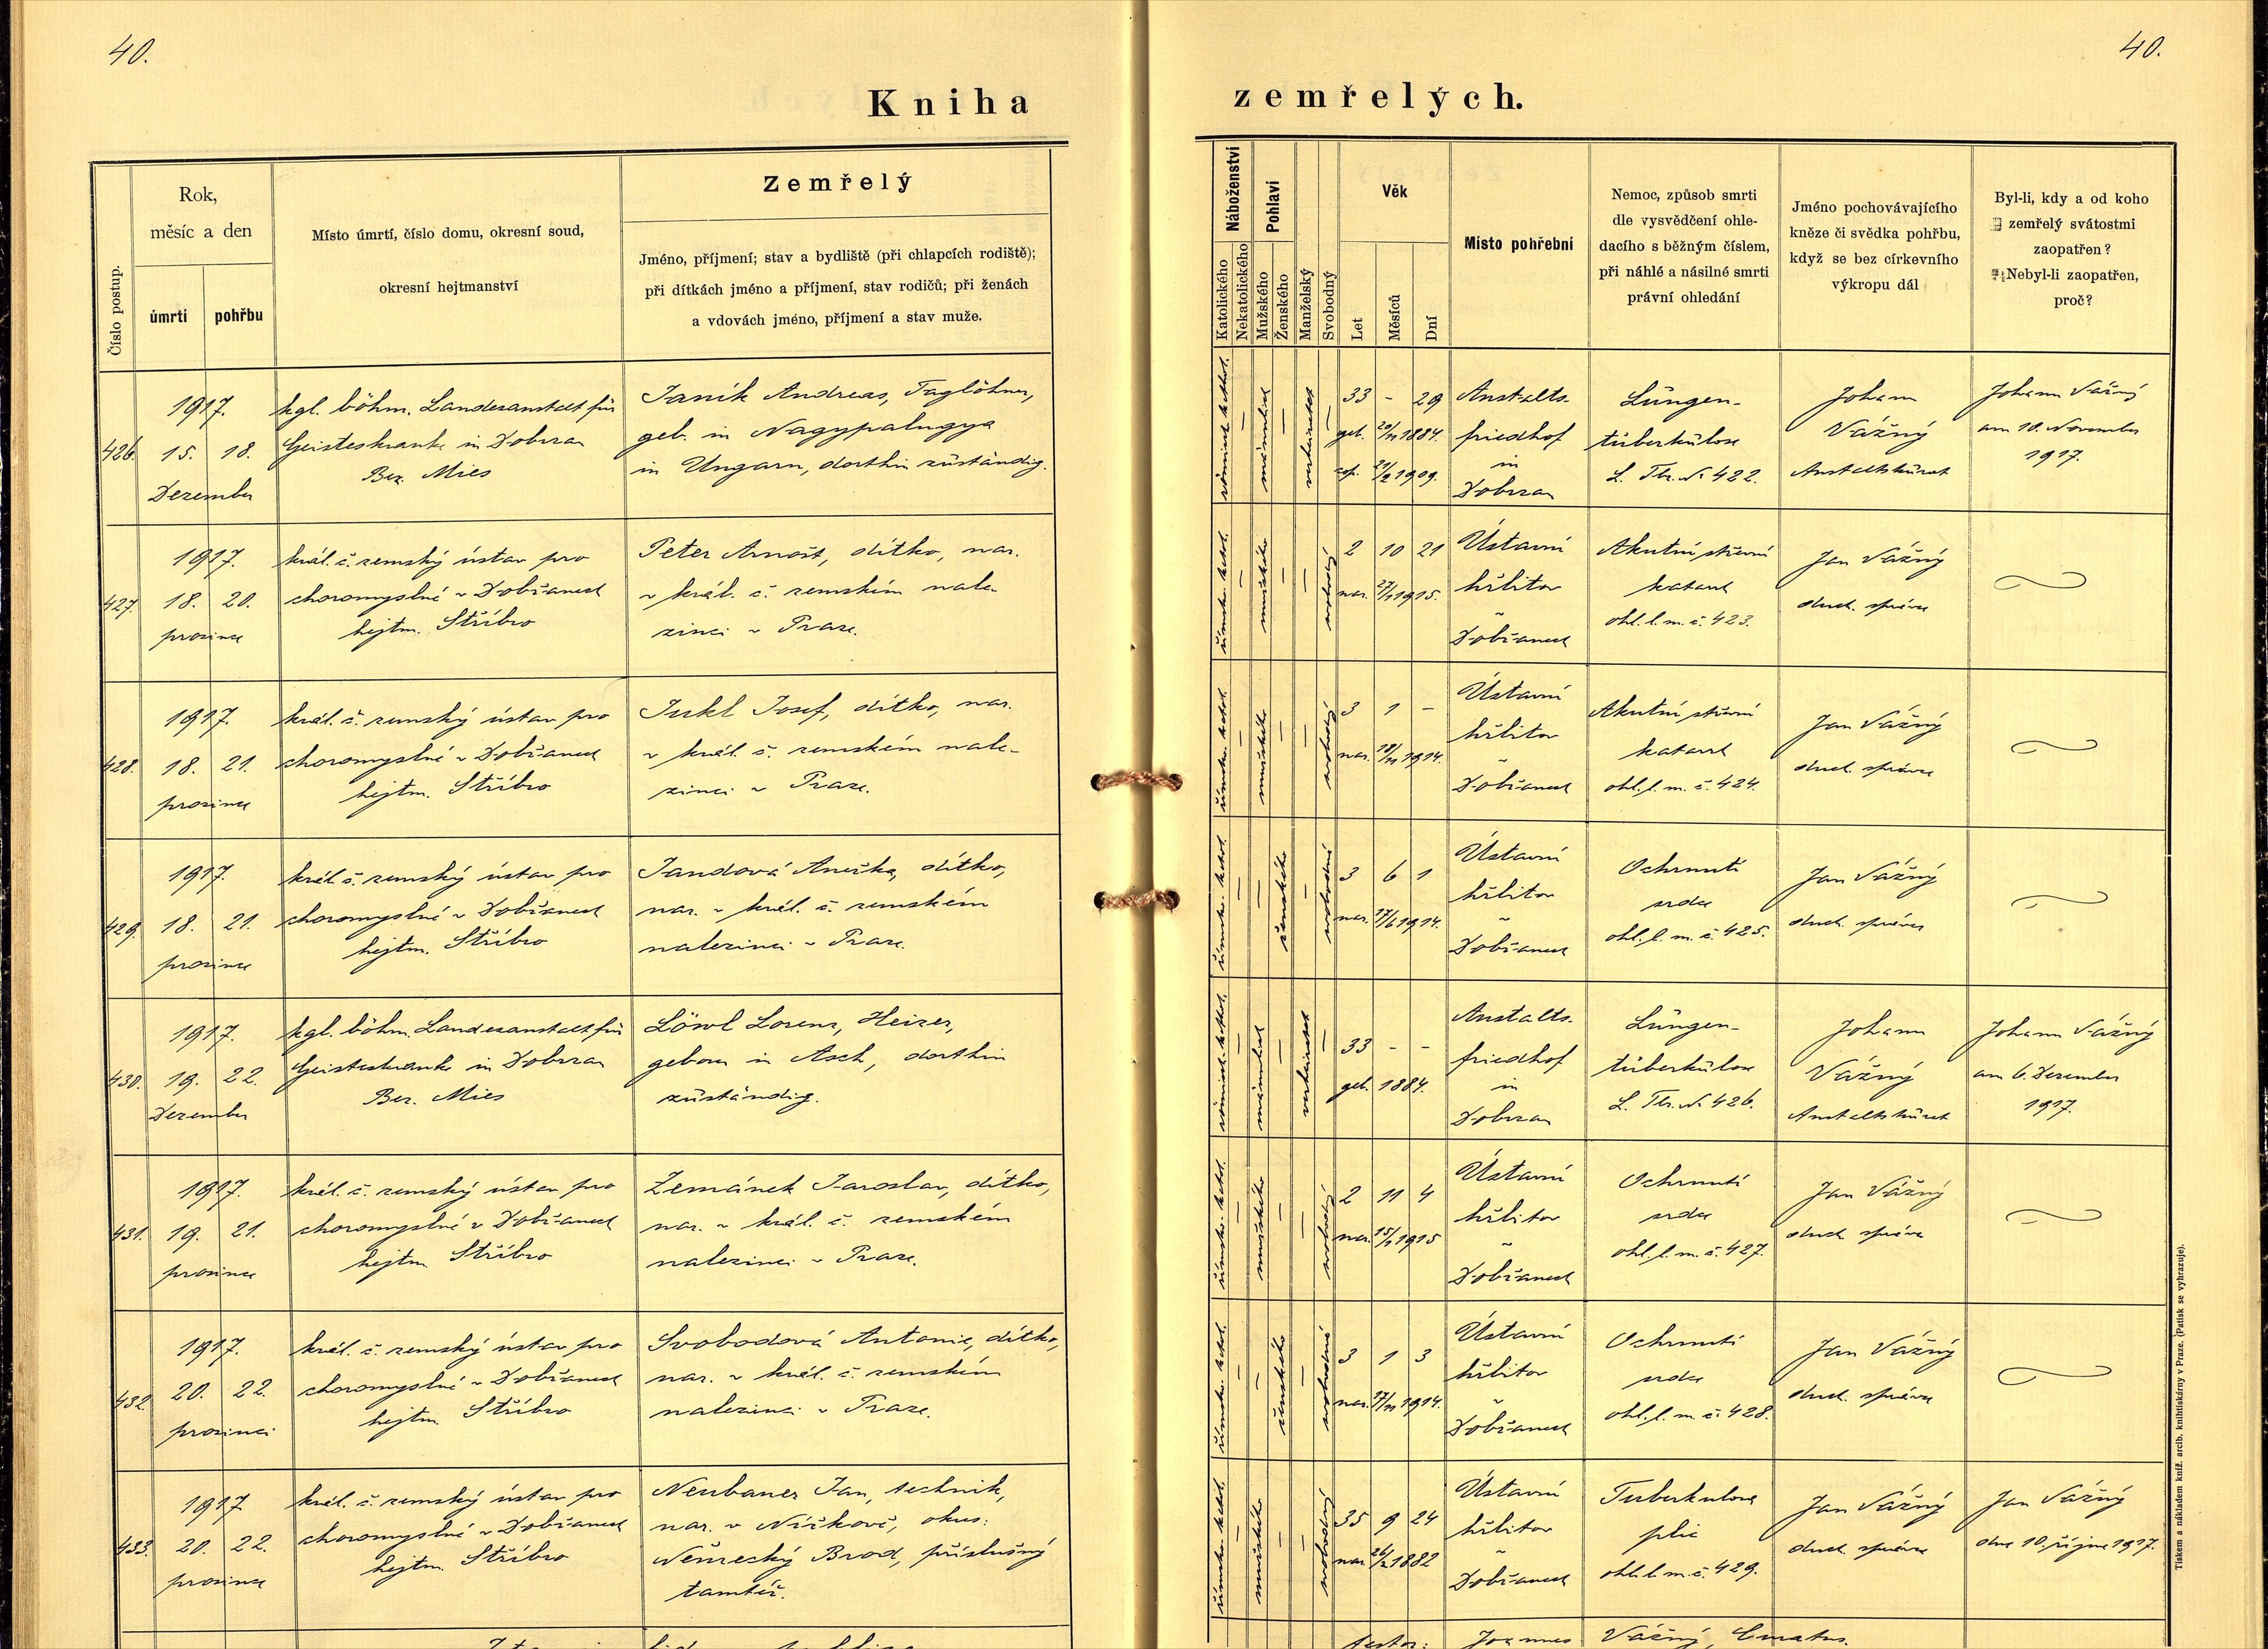 40.
40.
Kniha zemřelých.
Číslo postup.
Rok,
měsíc a den
úmrtí
pohřbu
Místo úmrtí, číslo domu, okresní soud,
okresní hejtmanství
Zemřelý
Jméno, příjmení; stav a bydliště (při chlapcích rodiště);
při dítkách jméno a příjmení, stav rodičů; při ženách
a vdovách jméno, příjmení a stav muže.
Náboženství
Katolického
Nekatolického
Pohlaví
Mužského
Ženského
Manželský
Svobodný
Věk
Let
Měsíců
Dní
Místo pohřební
Nemoc, způsob smrti
dle vysvědčení ohle-
dacího s běžným číslem,
při náhlé a násilné smrti
právní ohledání
Jméno pochovávajícího
kněze či svědka pohřbu,
když se bez církevního
výkropu dál
Byl-li, kdy a od koho
zemřelý svátostmi
zaopatřen?
Nebyl-li zaopatřen,
proč?
426.
1917.
15. 18.
Dezember
kgl. böhm. Landesanstalt für
Geisteskranke in Dobrzan
Bez. Mies
Janík Andreas, Taglöhner,
geb. in Nagypalugya
in Ungarn, dorthin zuständig.
römisch-kathol.
—
männlich
—
verheiratet
—
33 - 29
geb. 20/11 1884.
cop. 21/2 1909.
Anstalts-
friedhof
in
Dobrzan
Lungen-
tuberkulose
L. Tbr. N. 422.
Johann
Vážný
Anstaltskurat
Johann Vážný
am 10. November
1917.
427.
1917.
18. 20.
prosince
král. č. zemský ústav pro
choromyslné v Dobřanech
hejtm. Stříbro
Peter Arnošt, dítko, nar.
v král. č. zemském nale-
zinci v Praze.
římsko-kathol.
—
mužského
—
—
svobodný
2 10 21
nar. 27/1 1915.
Ústavní
hřbitov
v
Dobřanech
Akutní střevní
katarrh
ohl. l. m. č. 423.
Jan Vážný
duch. správce
428.
1917.
18. 21.
prosince
král. č. zemský ústav pro
choromyslné v Dobřanech
hejtm. Stříbro
Jukl Josef, dítko, nar.
v král. č. zemském nale-
zinci v Praze.
římsko-kathol.
—
mužského
—
—
svobodný
3 1 -
nar. 18/11 1914.
Ústavní
hřbitov
v
Dobřanech
Akutní střevní
katarrh
ohl. l. m. č. 424.
Jan Vážný
duch. správce
429.
1917.
18. 21.
prosince
král. č. zemský ústav pro
choromyslné v Dobřanech
hejtm. Stříbro
Jandová Anežka, dítko,
nar. v král. č. zemském
nalezinci v Praze.
římsko-kathol.
—
—
ženského
—
svobodná
3 6 1
nar. 17/6 1914.
Ústavní
hřbitov
v
Dobřanech
Ochrnutí
srdce
ohl. l. m. č. 425.
Jan Vážný
duch. správce
430.
1917.
19. 22.
Dezember
kgl. böhm. Landesanstalt für
Geisteskranke in Dobrzan
Bez. Mies
Löwl Lorenz, Heizer,
geboren in Asch, dorthin
zuständig.
römisch-kathol.
—
männlich
—
verheiratet
—
33 - -
geb. 1884.
Anstalts-
friedhof
in
Dobrzan
Lungen-
tuberkulose
L. Tbr. N. 426.
Johann
Vážný
Anstaltskurat
Johann Vážný
am 6. Dezember
1917.
431.
1917.
19. 21.
prosince
král. č. zemský ústav pro
choromyslné v Dobřanech
hejtm. Stříbro
Zemánek Jaroslav, dítko,
nar. v král. č. zemském
nalezinci v Praze.
římsko-kathol.
—
mužského
—
—
svobodný
2 11 4
nar. 15/1 1915
Ústavní
hřbitov
v
Dobřanech
Ochrnutí
srdce
ohl. l. m. č. 427.
Jan Vážný
duch. správce
432.
1917.
20. 22.
prosinci
král. č. zemský ústav pro
choromyslné v Dobřanech
hejtm. Stříbro
Svobodová Antonie, dítko,
nar. v král. č. zemském
nalezinci v Praze.
římsko-kathol.
—
—
ženského
—
svobodná
3 1 3
nar. 17/11 1914.
Ústavní
hřbitov
v
Dobřanech
Ochrnutí
srdce
ohl. l. m. č. 428.
Jan Vážný
duch. správce
433.
1917
20. 22.
prosince
král. č. zemský ústav pro
choromyslné v Dobřanech
hejtm. Stříbro
Neubauer Jan, technik,
nar. v Nížkově, okres:
Německý Brod, příslušný
tamtéž.
římsko-kathol.
—
mužského
—
—
svobodný
35 9 24
nar. 26/2 1882
Ústavní
hřbitov
v
Dobřanech
Tuberkulosa
plic
ohl. l. m. č. 429.
Jan Vážný
duch. správce
Jan Vážný
dne 10. října 1917.
testor: Joannes Vážný, Curatus.
Tiskem a nákladem kníž. arcib. knihtiskárny v Praze. (Patisk se vyhrazuje).